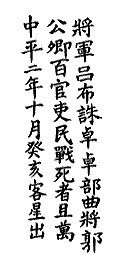 將軍呂布誅卓卓部曲將郭
公卿百官吏民戰死者且萬
中平二年十月癸亥客星出